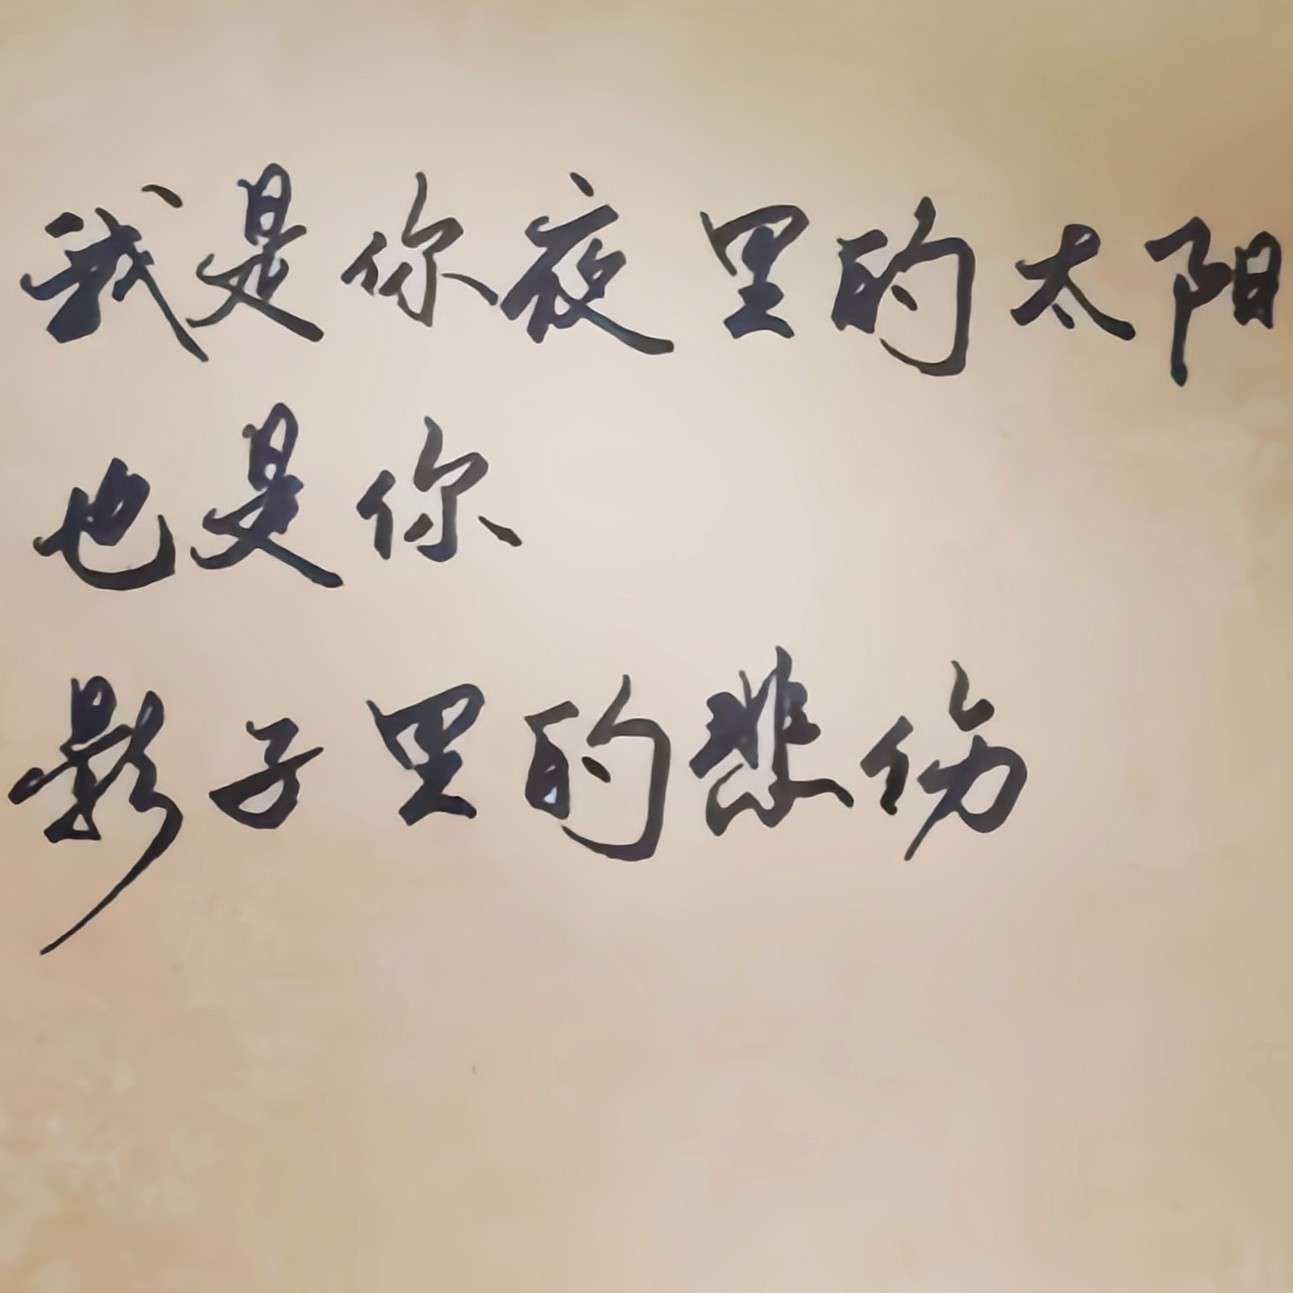 我是你夜里的太阳
也是你
影子里的悲伤